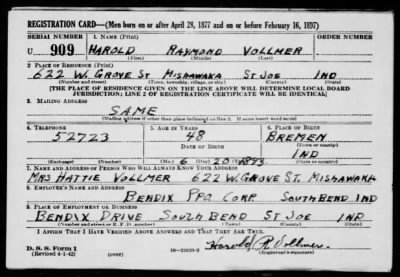 REGISTRATION CARD—(Men born on or after April 28, 1877 and on or before February 16, 1897)
SERIAL NUMBER 1. NAME (Print) ORDER NUMBER
U 909 HAROLD RAYMOND VOLLMER
(First) (Middle) (Last)
2. PLACE OF RESIDENCE (Print)
622 W. GROVE ST MISHAWAKA ST JOE IND
(Number and street) (Town, township, village, or city) (County) (State)
[THE PLACE OF RESIDENCE GIVEN ON THE LINE ABOVE WILL DETERMINE LOCAL BOARD
JURISDICTION; LINE 2 OF REGISTRATION CERTIFICATE WILL BE IDENTICAL]
3. MAILING ADDRESS
SAME
[Mailing address if other than place indicated on line 2. If same insert word same]
4. TELEPHONE 5. AGE IN YEARS 6. PLACE OF BIRTH
52723 48 BREMEN
DATE OF BIRTH (Town or county)
6 20 1893 IND
(Exchange) (Number) (Mo.) (Day) (Yr.) (State or country)
7. NAME AND ADDRESS OF PERSON WHO WILL ALWAYS KNOW YOUR ADDRESS
MRS HATTIE VOLLMER 622 W. GROVE ST. MISHAWAKA
8. EMPLOYER'S NAME AND ADDRESS
BENDIX PPG CORP. SOUTH BEND IND
9. PLACE OF EMPLOYMENT OR BUSINESS
BENDIX DRIVE SOUTH BEND ST JOE IND
(Number and street or R. F. D. number) (Town) (County) (State)
I AFFIRM THAT I HAVE VERIFIED ABOVE ANSWERS AND THAT THEY ARE TRUE.
D. S. S. Form 1 Harold R. Vollmer
(Revised 4-1-42) (over) (Registrant's signature)